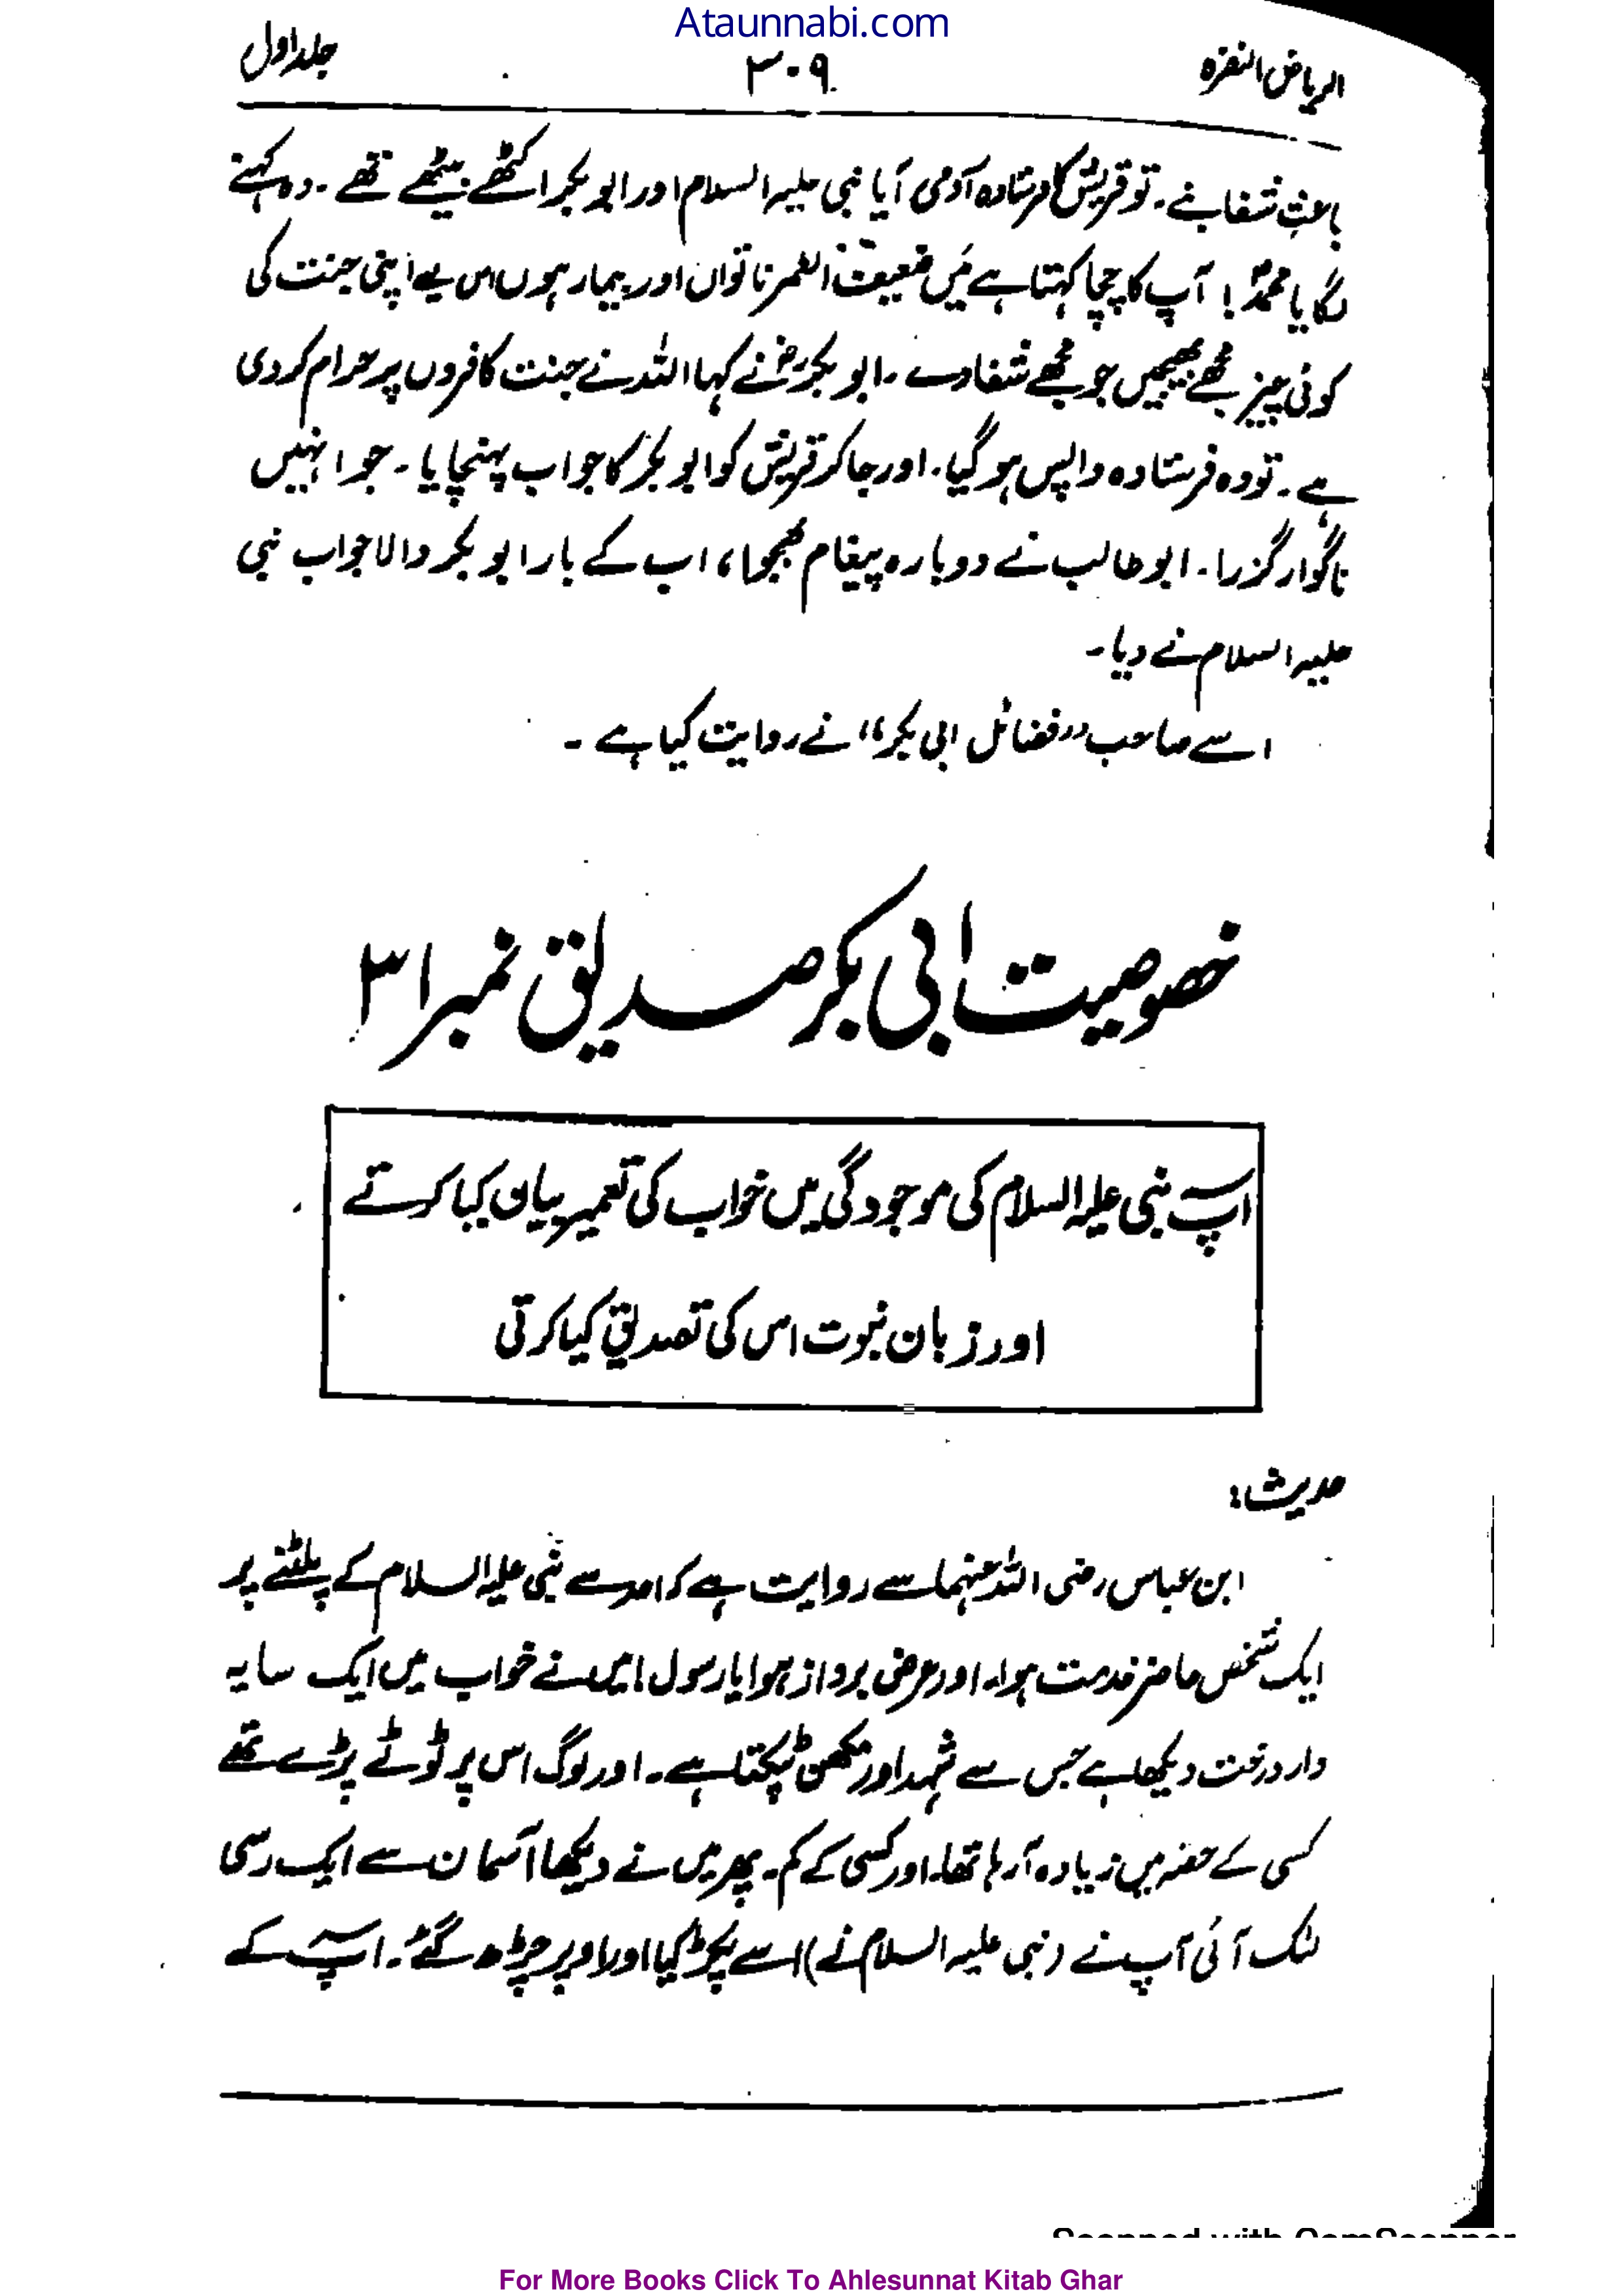 Ataunnabi.com
الریاض النضرہ ۳۰۹ جلد اول
باعثِ شفا بنے۔ تو قریش کا فرستادہ آدمی آیا نبی علیہ السلام اور ابو بکر اکٹھے بیٹھے تھے۔ وہ کہنے
لگا یا محمدؐ! آپ کا چچا کہتا ہے میَں ضعیف العمر ناتواں اور بیمار ہوں اس لیے اپنی جنت کی
کوئی چیز مجھے بھیجیں جو مجھے شفا دے۔ ابو بکرؓ نے کہا اللہ نے جنت کافروں پر حرام کر دی
ہے۔ تو وہ فرستادہ واپس ہو گیا۔ اور جا کر قریش کو ابو بکرؓ کا جواب پہنچایا۔ جو انہیں
ناگوار گزرا۔ ابو طالب نے دوبارہ پیغام بھجوا، اب کے بار ابو بکر والا جواب نبی
علیہ السلام نے دیا۔
اسے صاحب ’’فضائل ابی بکرؓ‘‘ نے روایت کیا ہے۔
خصوصیت ابی بکر صدیق نمبر ۳۱
آپ نبی علیہ السلام کی موجودگی میں خواب کی تعبیر بیان کیا کرتے
اور زبان نبوت اس کی تصدیق کیا کرتی
حدیث:
ابن عباس رضی اللہ عنہما سے روایت ہے کہ احد سے نبی علیہ السلام کے پلٹنے پر
ایک شخص حاضر خدمت ہوا۔ اور عرض پرداز ہوا یا رسول! میں نے خواب میں ایک سایہ
دار درخت دیکھا ہے جس سے شہد اور مکھن ٹپکتا ہے۔ اور لوگ اس پر ٹوٹے پڑے تھے
کسی کے حصہ میں زیادہ آ رہا تھا۔ اور کسی کے کم۔ پھر میں نے دیکھا آسمان سے ایک رسی
لٹک آئی آپ نے (نبی علیہ السلام نے) اسے پکڑ لیا اور اوپر چڑھ گئے۔ آپ کے
For More Books Click To Ahlesunnat Kitab Ghar